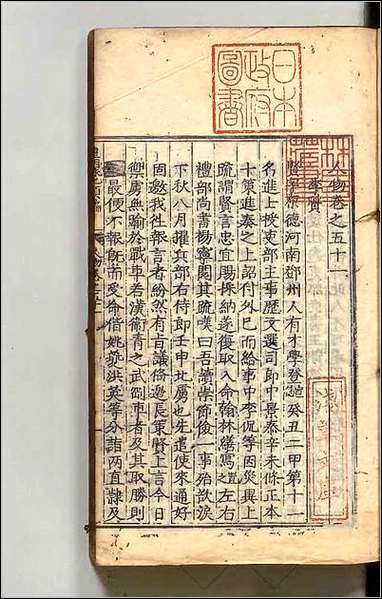 日本
政府
圖書
人物卷之五十一
李賢
賢字原德河南鄧州人有才學登進癸丑二甲第十一
名進士授吏部主事歷文選司郎中景泰辛未條正本
十策進奏之上詔付外已而給事中李侃等因災異上
疏謂賢言忠宜賜採納遂復取入命翰林繕寫置之左右
禮部尚書楊寧閱其疏嘆曰吾讀崇節儉一事殆欲淚
下秋八月擢兵部右侍郎壬申北虜也先遣使來通好
因邀我往報言者紛然有旨議偹邊長策賢上言今日
禦虜無踰於戰車若漢衛青之武剛車者及其取勝則
最便不報旣而受命偕姚夔洪英等分詣兩直隷及